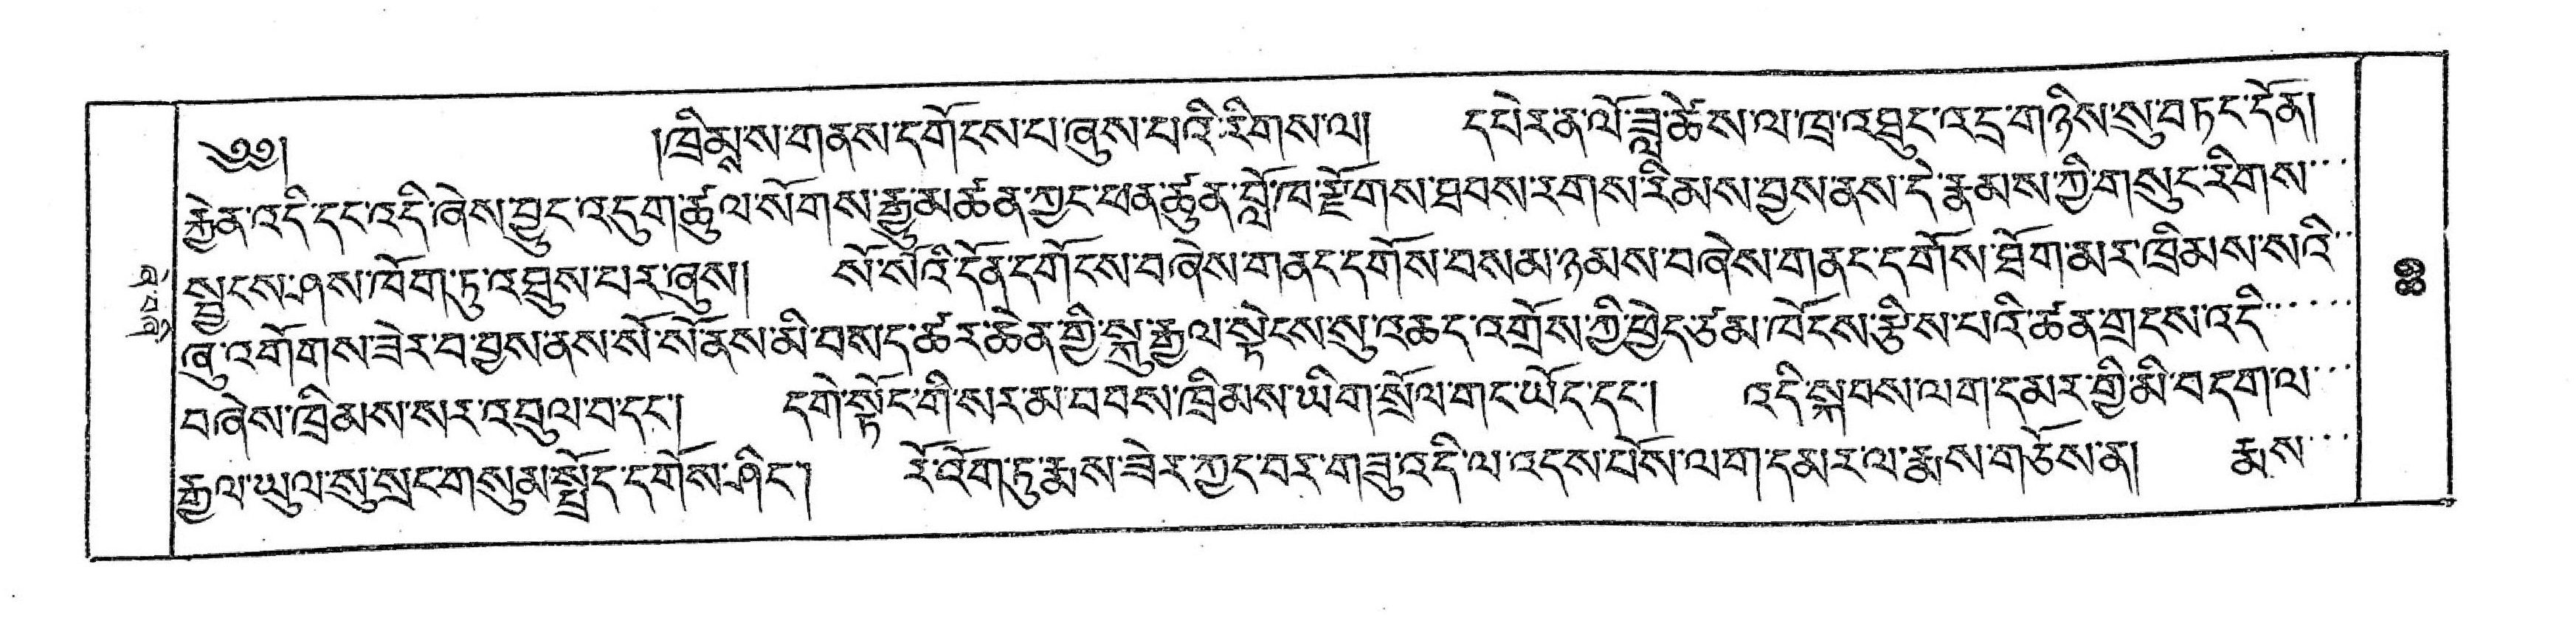 ༄༅། །ཁྲིམྶ་ས་གནས་དགོངས་པ་ཞུས་པའི་རིགས་ལ། དཔེར་ན་ལོ་ཟླ་ཚེས་ལ་ཁྲ་འཐུང་འདྲ་གཉིས་སུ་བཏང་དོན།
རྐྱེན་འདི་དང་འདི་ཞེས་བྱུང་འདུག་ཚུལ་སོགས་རྒྱུ་མཚན་ཀྱང་ཕན་ཚུན་བློ་ཁ་རྫོགས་ཐབས་རགས་རིམས་བྱས་ནས་དེ་རྣམས་ཀྱི་གསུང་རིགས
སྦྱངས་ཤས་ཁོག་ཏུ་འཐུས་པར་ཞུས། སོ་སོའི་དོན་དགོངས་བཞེས་གནང་དགོས་བསམ་ཉམས་བཞེས་གནང་དགོས་ཐོག་མར་ཁྲིམས་སའི
ཞུ་འགོགས་ཟེར་བ་བྱས་ནས་སོ་སོ་ནོས་མི་བསད་ཚར་ཆེན་གྱི་སྐུ་རྒྱལ་སྟེངས་སུ་འཆད་འགྲོས་ཀྱི་ཕྱེད་ཙམ་ཁོངས་རྩིས་པའི་ཚན་གྲངས་འདི
བཞེས་ཁྲིམས་སར་འབུལ་བ་དང་། དགེ་སྟོང་གི་སར་མ་བབས་ཁྲིམས་ཡིག་སྲོལ་གང་ཡོད་དང་། འདི་སྐབས་ལག་དམར་གྱི་མི་བདག་ལ
རྒྱལ་ཡུལ་སུ་སྲང་གསུམ་སྤྲོད་དགོས་ཤིང་། རོ་འོག་ཏུ་རྨས་ཟེར་ཀྱང་བར་གཟུ་འདི་ལ་འདས་པོས་ལག་དམར་ལ་རྨས་གཙོས་ན། རྨས